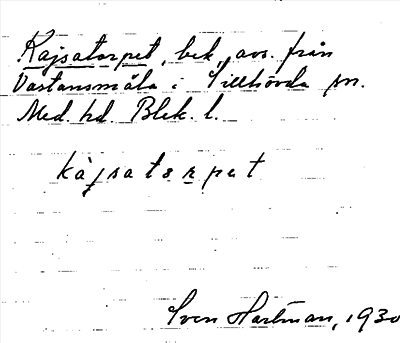 Kajsatorpet, bek., avs. från
Västansmåla i Tillhövda sn.
Med. hd. Blek. l.
kàjsatɛrpet
Sven Hartman, 1930